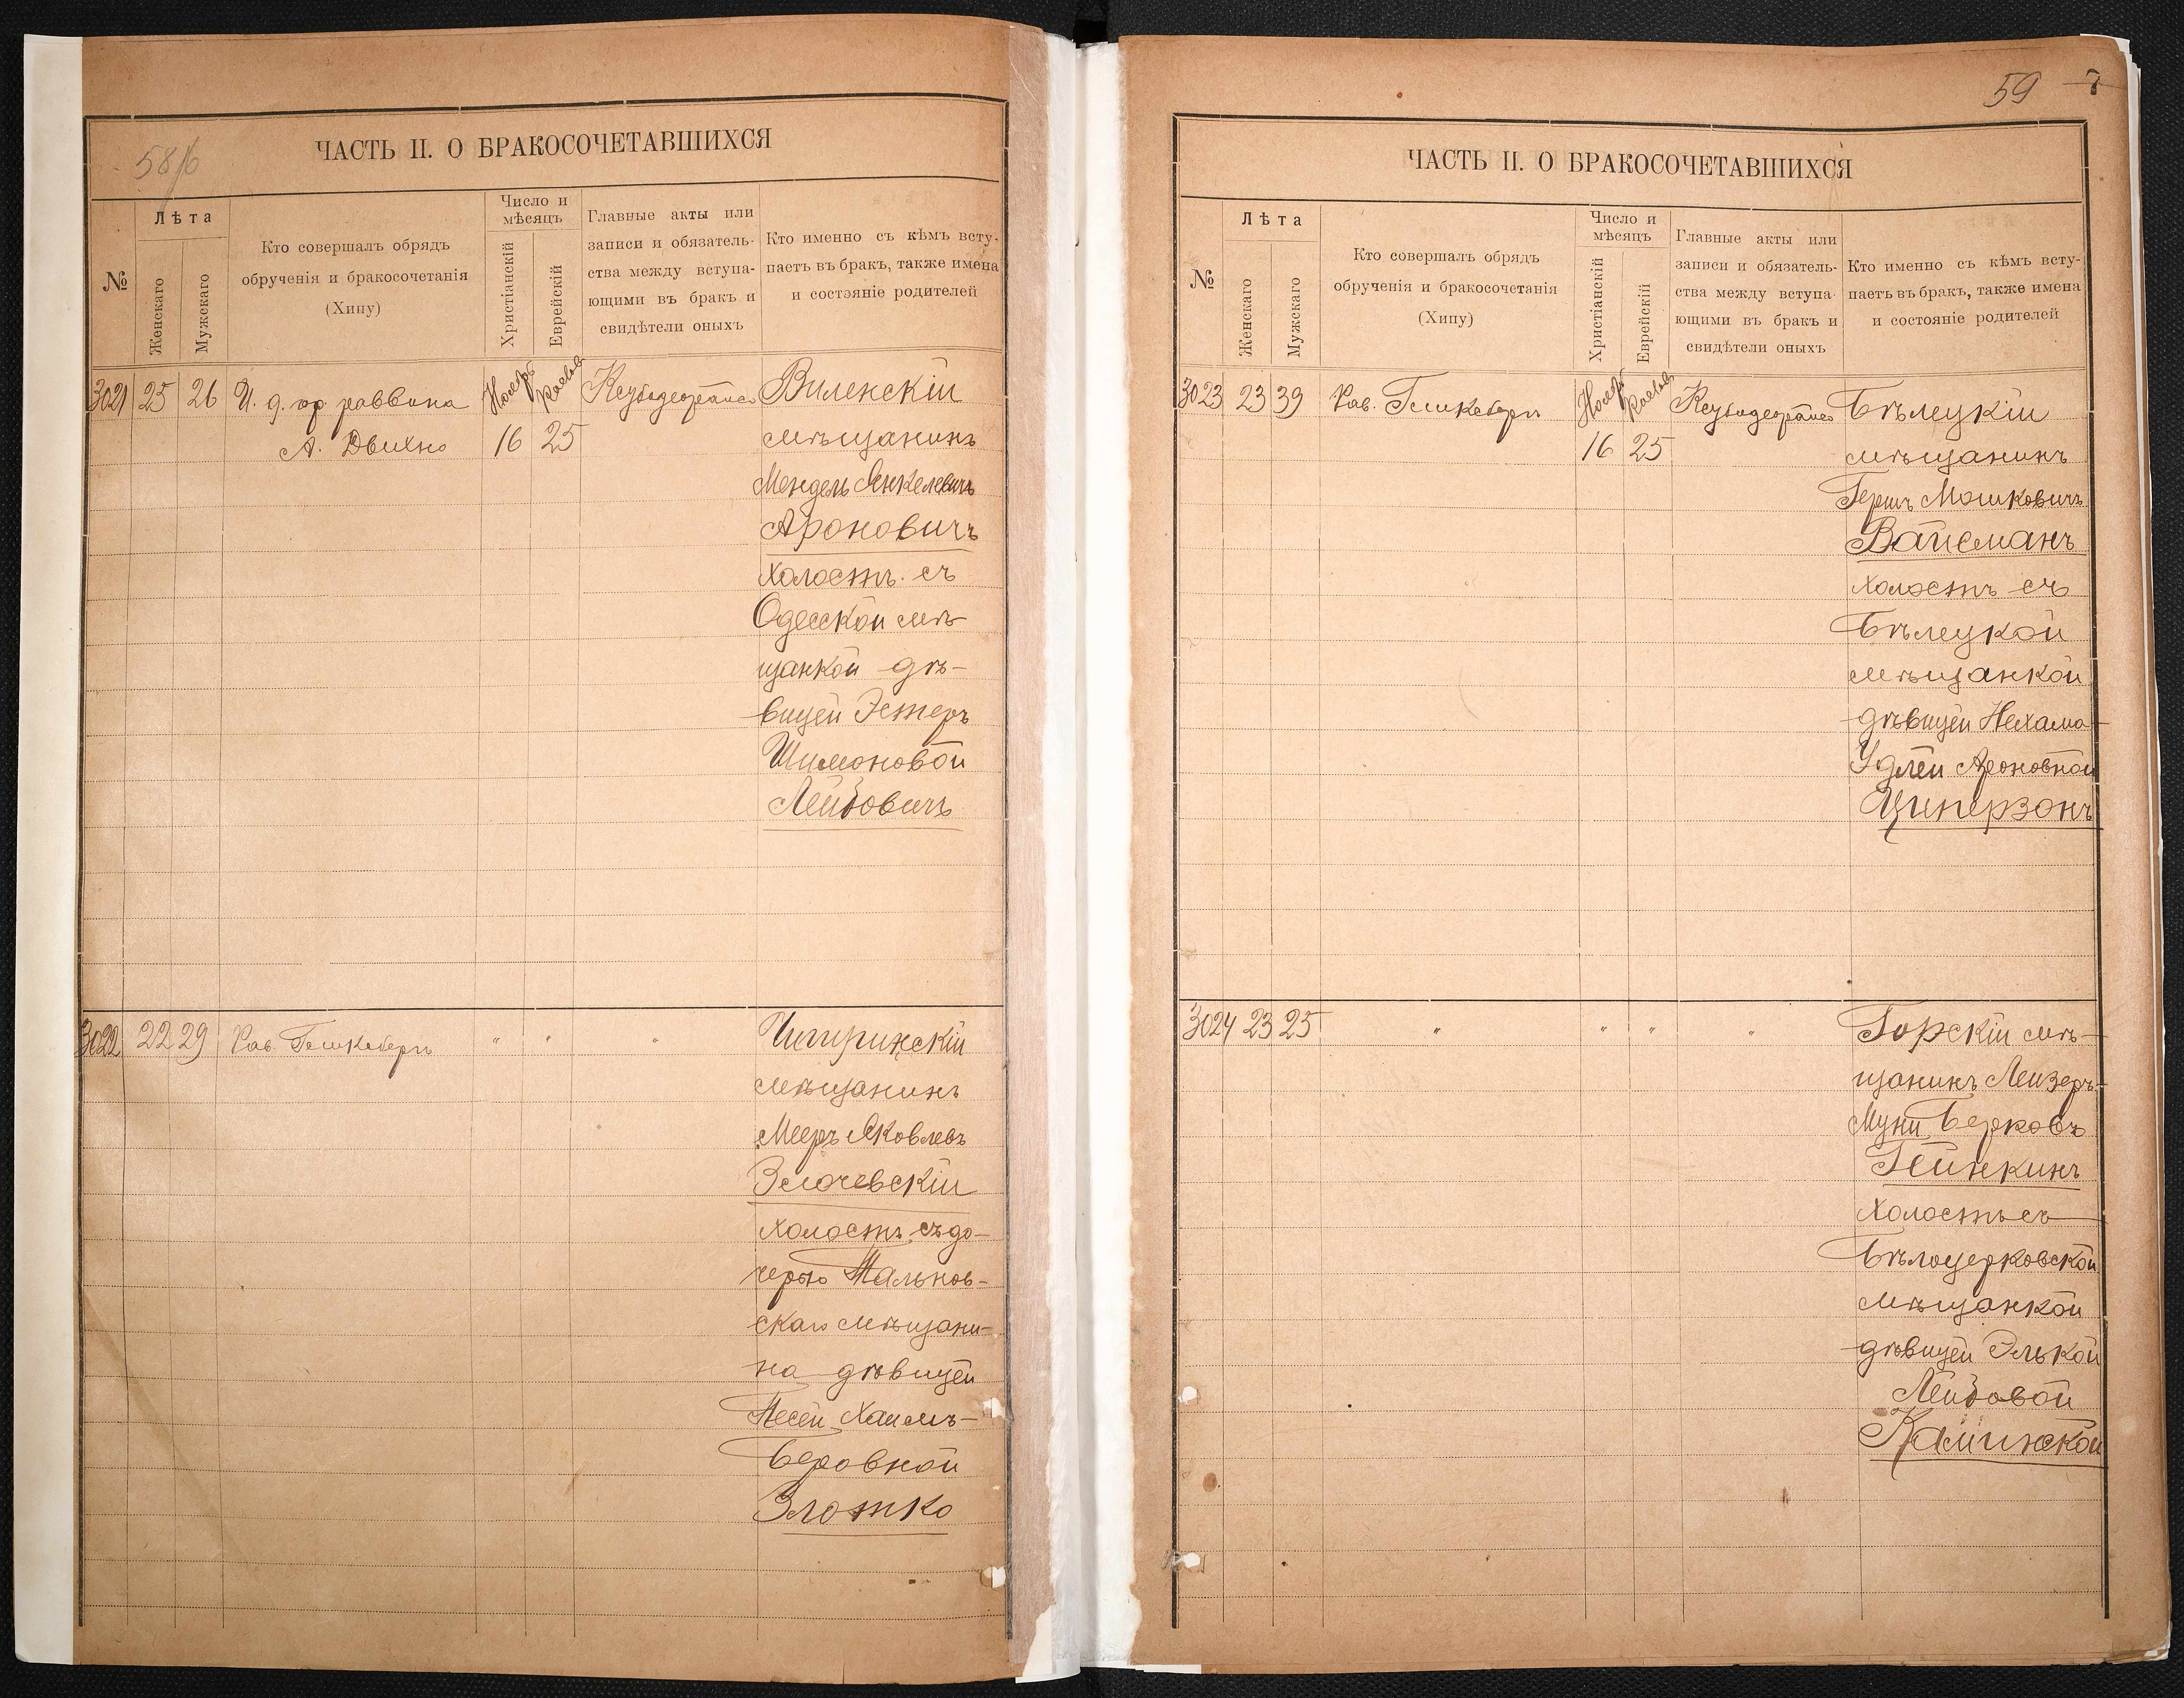 58/б
ЧАСТЬ II. О БРАКОСОЧЕТАВШИХСЯ
№
Лѣта
Женскаго
Мужскаго
Кто совершалъ обрядъ
обрученія и бракосочетанія
(Хипу)
Число и
мѣсяцъ
Христіанскій
Еврейскій
Главные акты или
записи и обязатель-
ства между вступа-
ющими въ бракъ и
свидѣтели оныхъ
Кто именно съ кѣмъ всту-
паетъ въ бракъ, также имена
и состояніе родителей
3021 25 26 И. д. гор. раввина Ноябрь Кислевъ Виленскій
А. Двихно 16 25 мѣщанинъ
Мендель Янкелевичъ
Ароновичъ
холостъ съ
Одесской мѣ-
щанкой дѣ-
вицей Эстеръ
Шимоновой
Лейбовичъ
3022 22 29 Рав. " " " Чигиринскій
мѣщанинъ
Мееръ Яковлевъ
Злочевскій
холостъ съ до-
черью Тальнов-
скаго мѣщани-
на дѣвицей
Песей Хаимъ-
Беровной
Злотко
59 7
ЧАСТЬ II. О БРАКОСОЧЕТАВШИХСЯ
№
Лѣта
Женскаго
Мужскаго
Кто совершалъ обрядъ
обрученія и бракосочетанія
(Хипу)
Число и
мѣсяцъ
Христіанскій
Еврейскій
Главные акты или
записи и обязатель-
ства между вступа-
ющими въ бракъ и
свидѣтели оныхъ
Кто именно съ кѣмъ всту-
паетъ въ бракъ, также имена
и состояніе родителей
3023 23 39 Рав. Ноябрь Кислевъ Бѣлецкій
16 25 мѣщанинъ
Гершъ Мошковичъ
Вайсманъ
холостъ съ
Бѣлецкой
мѣщанкой
дѣвицей Нехама-
Удлей Ароновной
Циперзонъ
3024 23 25 " " " " Горскій мѣ-
щанинъ Лейзеръ-
Муни Берковъ
Гейнкинъ
холостъ съ
Бѣлоцерковской
мѣщанкой
дѣвицей Элькой
Лейбовой
Каминской